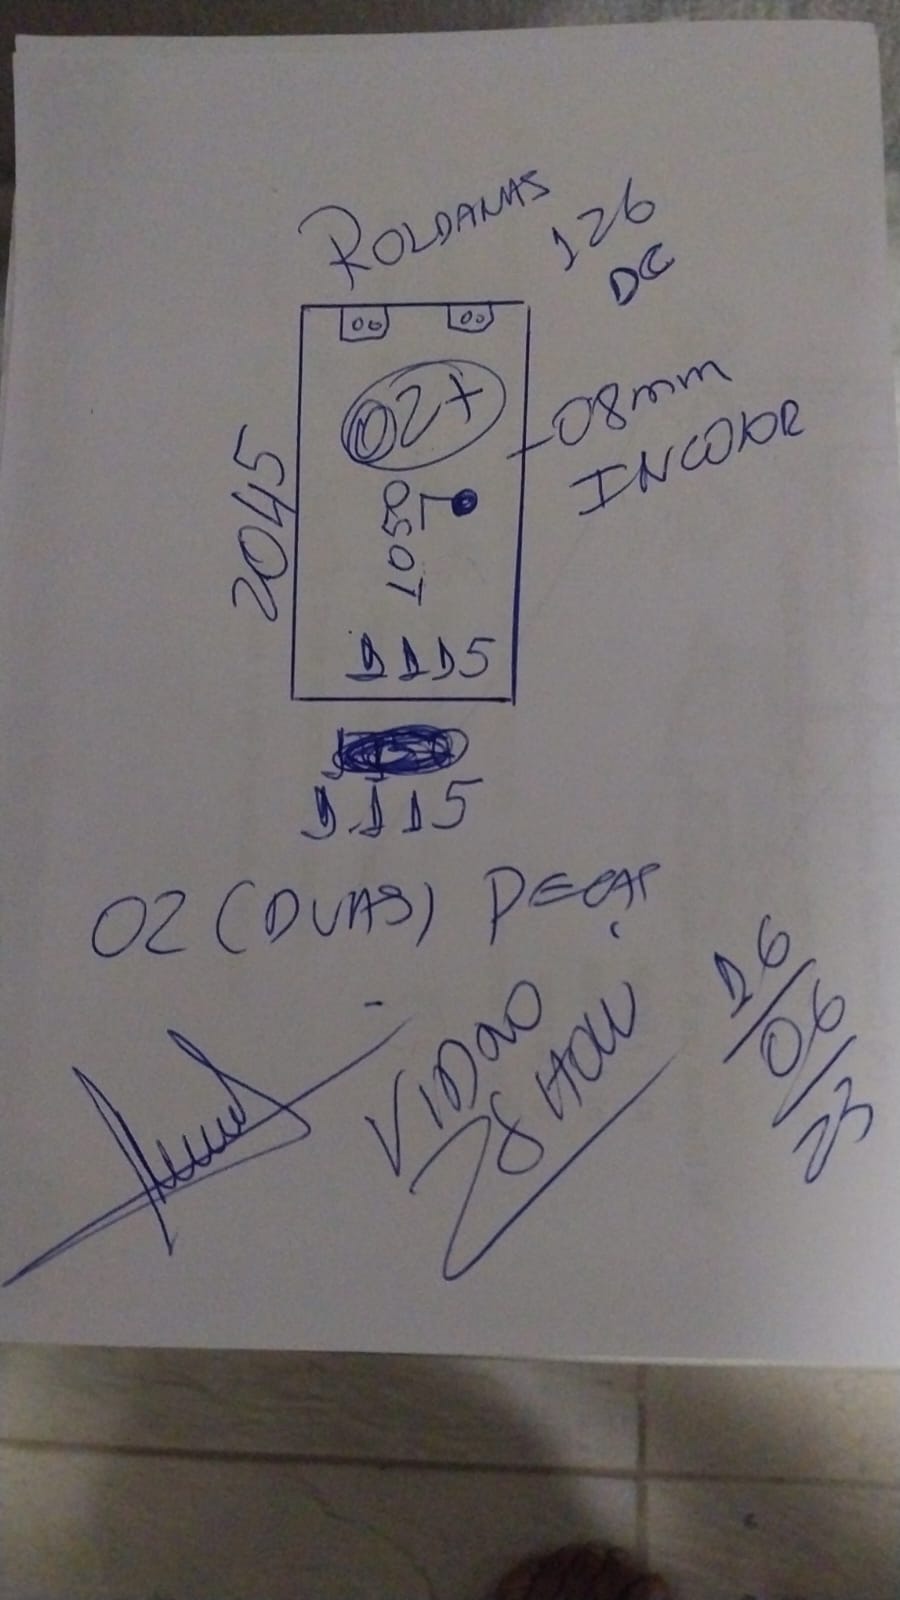 ROLDANAS
126
DC
02+
08mm
INCOLOR
2045
1050
1115
1115
02 (DUAS) PEÇAS
VIDRO
SHOW
16/06/23